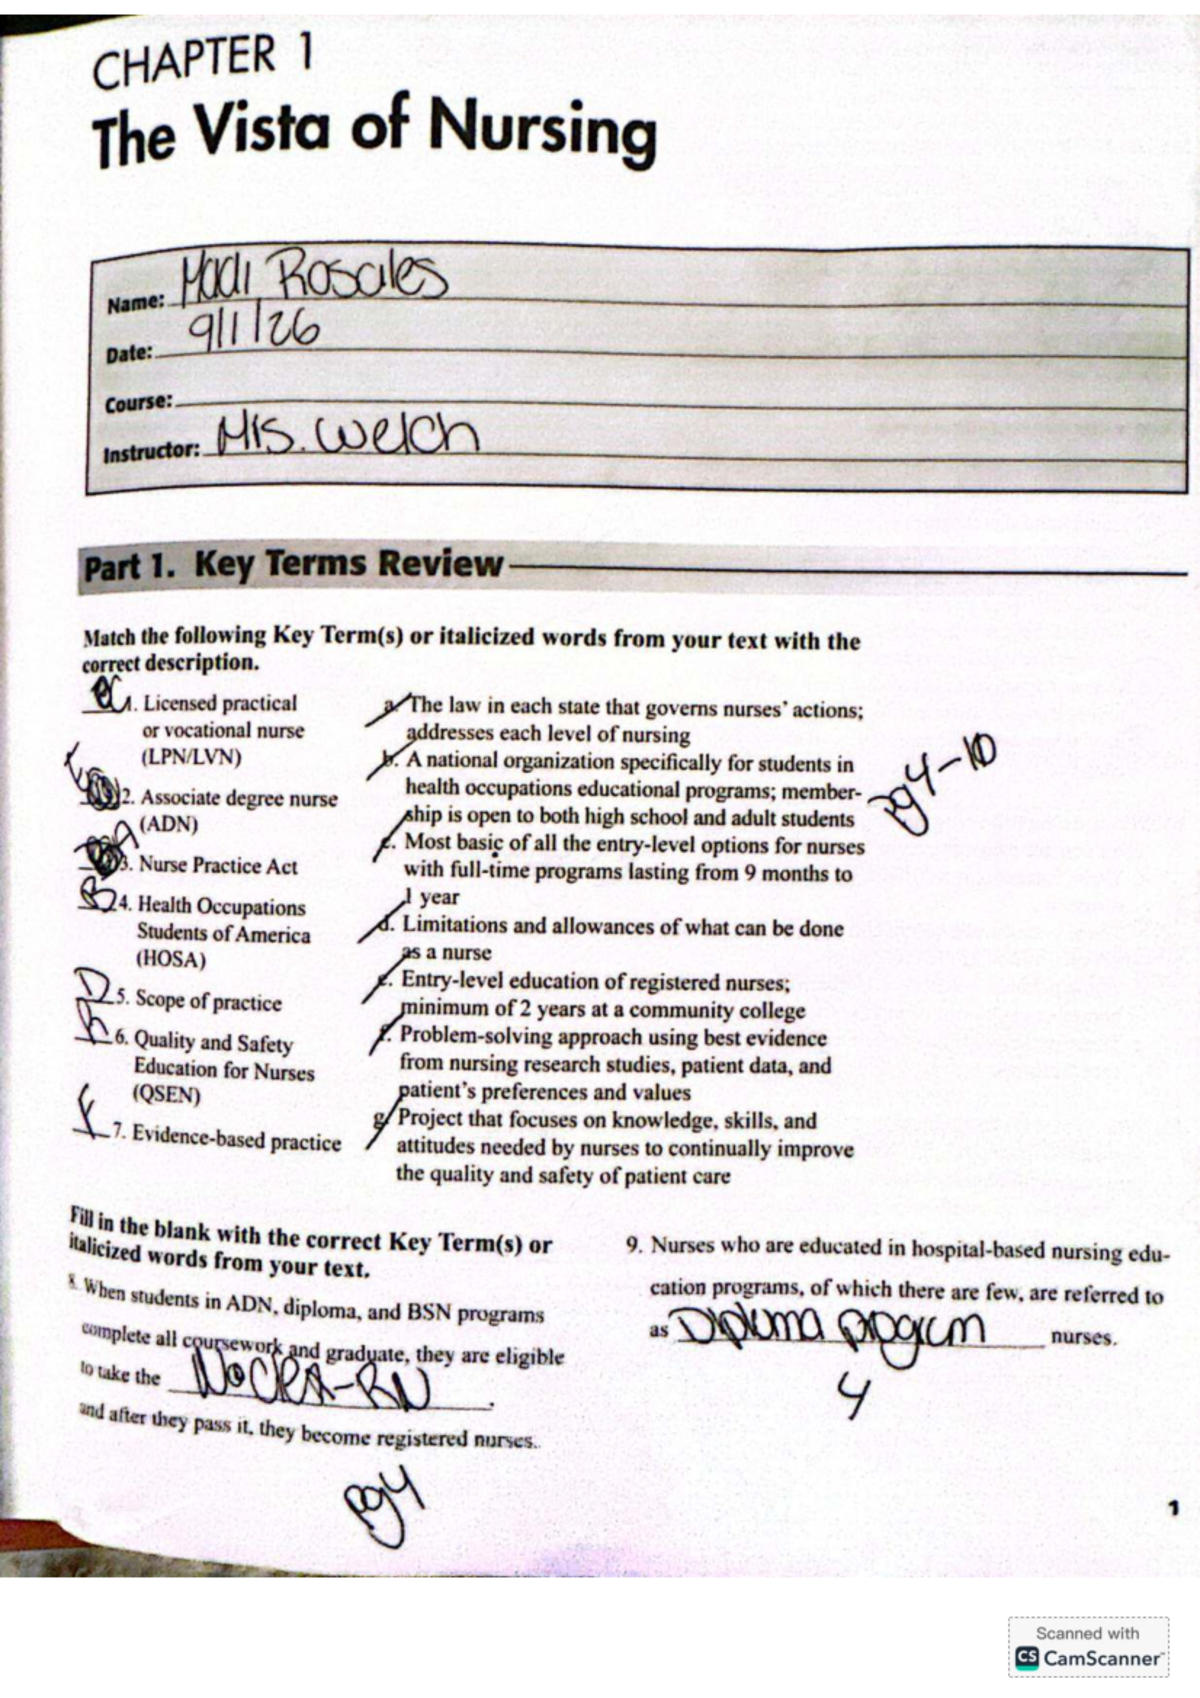 CHAPTER 1
The Vista of Nursing
Name: Madi Rosales
Date: 9/1/26
Course:
Instructor: Mrs. Welch
Part 1. Key Terms Review
Match the following Key Term(s) or italicized words from your text with the
correct description.
C 1. Licensed practical
or vocational nurse
(LPN/LVN)
2. Associate degree nurse
(ADN)
A 3. Nurse Practice Act
B 4. Health Occupations
Students of America
(HOSA)
D 5. Scope of practice
6. Quality and Safety
Education for Nurses
(QSEN)
f 7. Evidence-based practice
a. The law in each state that governs nurses' actions;
addresses each level of nursing
b. A national organization specifically for students in
health occupations educational programs; member-
ship is open to both high school and adult students
c. Most basic of all the entry-level options for nurses
with full-time programs lasting from 9 months to
1 year
d. Limitations and allowances of what can be done
as a nurse
e. Entry-level education of registered nurses;
minimum of 2 years at a community college
f. Problem-solving approach using best evidence
from nursing research studies, patient data, and
patient's preferences and values
g. Project that focuses on knowledge, skills, and
attitudes needed by nurses to continually improve
the quality and safety of patient care
pg 4-10
Fill in the blank with the correct Key Term(s) or
italicized words from your text.
8. When students in ADN, diploma, and BSN programs
complete all coursework and graduate, they are eligible
to take the -RN.
and after they pass it, they become registered nurses.
pg 4
9. Nurses who are educated in hospital-based nursing edu-
cation programs, of which there are few, are referred to
as Diploma program nurses.
4
1
Scanned with
CS CamScanner